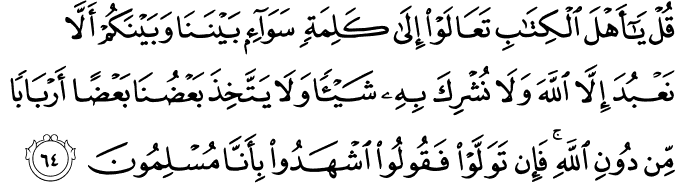 قُلْ يَـٰٓأَهْلَ ٱلْكِتَـٰبِ تَعَالَوْا۟ إِلَىٰ كَلِمَةٍۢ سَوَآءٍۭ بَيْنَنَا وَبَيْنَكُمْ أَلَّا
نَعْبُدَ إِلَّا ٱللَّهَ وَلَا نُشْرِكَ بِهِۦ شَيْـًۭٔا وَلَا يَتَّخِذَ بَعْضُنَا بَعْضًا أَرْبَابًۭا
مِّن دُونِ ٱللَّهِ ۚ فَإِن تَوَلَّوْا۟ فَقُولُوا۟ ٱشْهَدُوا۟ بِأَنَّا مُسْلِمُونَ ٦٤